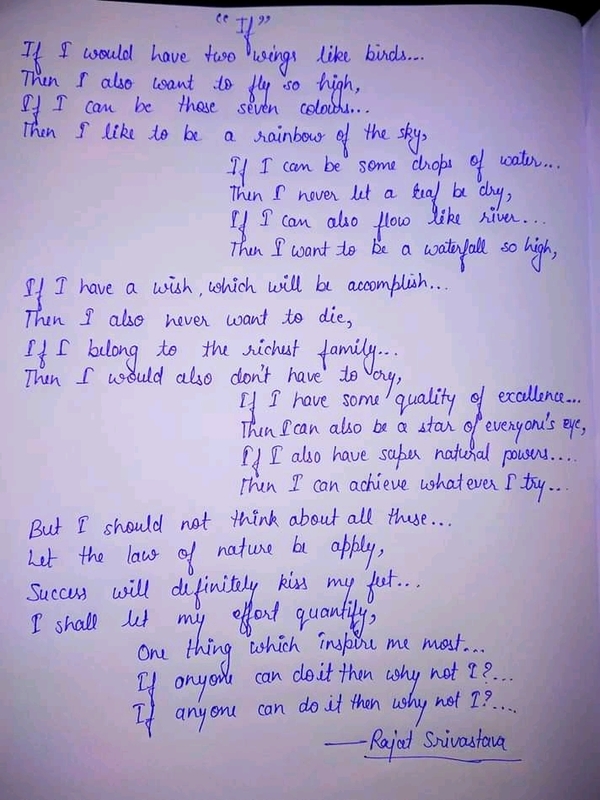 “If”
If I would have two wings like birds...
Then I also want to fly so high,
If I can be those seven colours...
Then I like to be a rainbow of the sky,
If I can be some drops of water...
Then I never let a leaf be dry,
If I can also flow like river...
Then I want to be a waterfall so high,
If I have a wish, which will be accomplish...
Then I also never want to die,
If I belong to the richest family...
Then I would also don't have to cry,
If I have some quality of excellence...
Then I can also be a star of everyone's eye,
If I also have super natural powers....
Then I can achieve whatever I try...
But I should not think about all these...
Let the law of nature be apply,
Success will definitely kiss my feet...
I shall let my effort quantify,
One thing which inspire me most...
If anyone can do it then why not I?...
If anyone can do it then why not I?....
— Rajat Srivastava